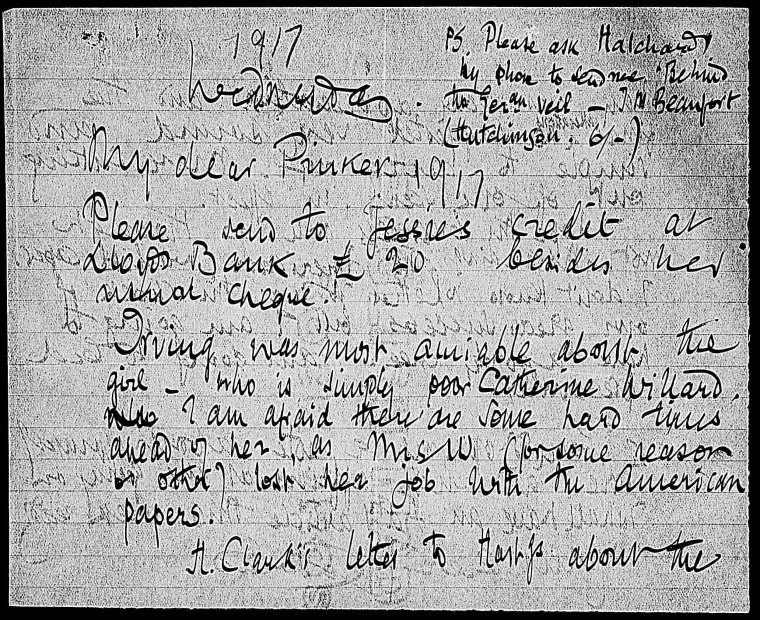 1917
Wednesday.
PS. Please ask Hatchards
by phone to send me "Behind
the German Veil" – J M Beaufort
(Hutchinson. 6/-)
My dear Pinker 1917
Please send to Jessie's credit at
Lloyds Bank £ 20 besides her
usual cheque.
Irving was most amiable about the
girl – who is simply poor Catherine Willard.
I am afraid there are some hard times
ahead of her, as Mrs W (for some reason
or other) lost her job with the American
papers.
H. Clark's letter to Hastgs about the